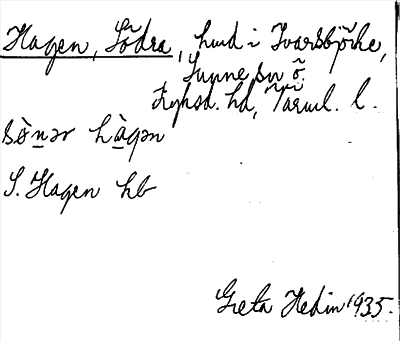 Hagen, Södra, hmd i Ivarsbjörke,
Sunne sn Ö.
Fryksd. hd, Värml. l.
sö̀nər hàgən
S. Hagen hb
Greta Hedin 1935.